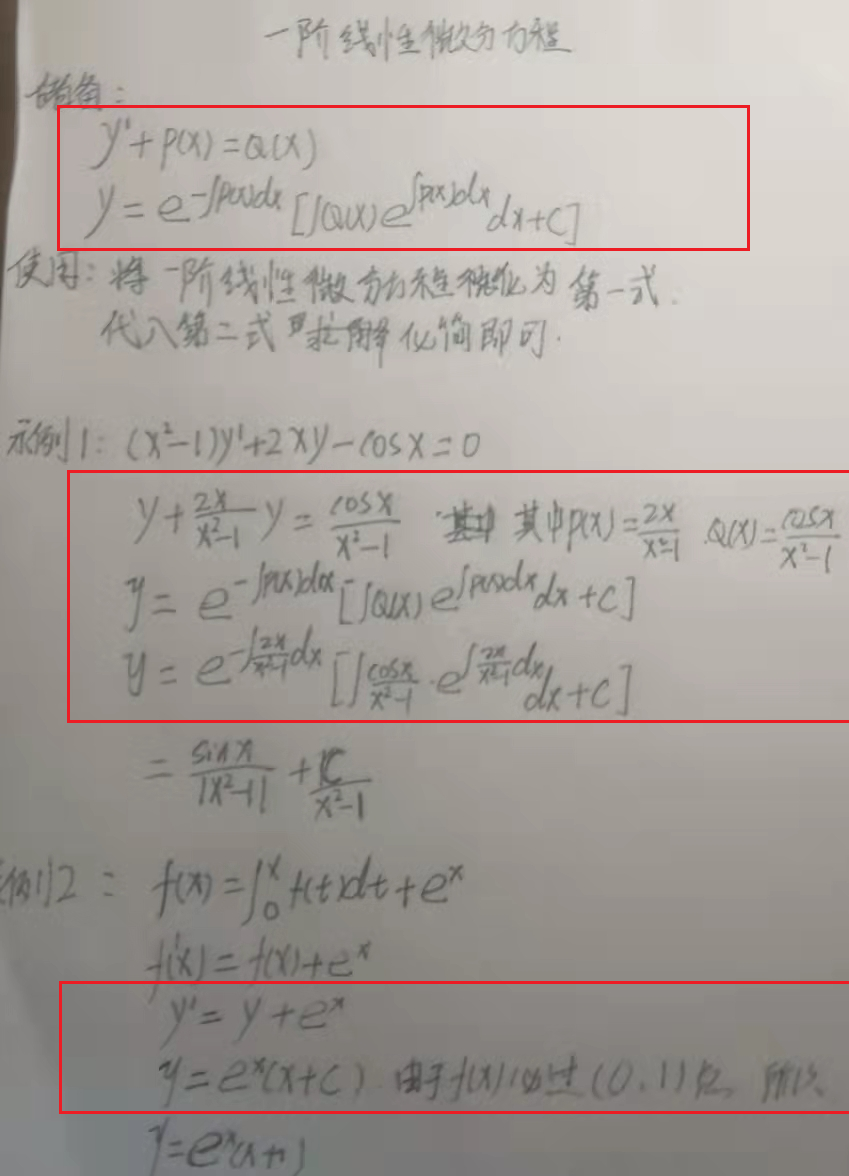 一阶线性微分方程
储备:
y'+p(x)=Q(x)
y=e^{-∫p(x)dx}[∫Q(x)e^{∫p(x)dx}dx+C]
使用: 将一阶线性微分方程转化为第一式.
代入第二式 求解化简即可.
示例1: (x²-1)y'+2xy-cosx=0
y+\frac{2x}{x²-1}y=\frac{cosx}{x²-1} 其中p(x)=\frac{2x}{x²-1} .Q(x)=\frac{cosx}{x²-1}
y=e^{-∫p(x)dx}[∫Q(x)e^{∫p(x)dx}dx+C]
y=e^{-∫\frac{2x}{x²-1}dx}[∫\frac{cosx}{x²-1}·e^{∫\frac{2x}{x²-1}dx}dx+C]
=\frac{sinx}{|x²-1|}+\frac{C}{x²-1}
例2: f(x)=∫_0^x f(t)dt+e^x
f'(x)=f(x)+e^x
y'=y+e^x
y=e^x(x+C) 由于f(x)必过(0.1)点, 所以
y=e^x(x+1)